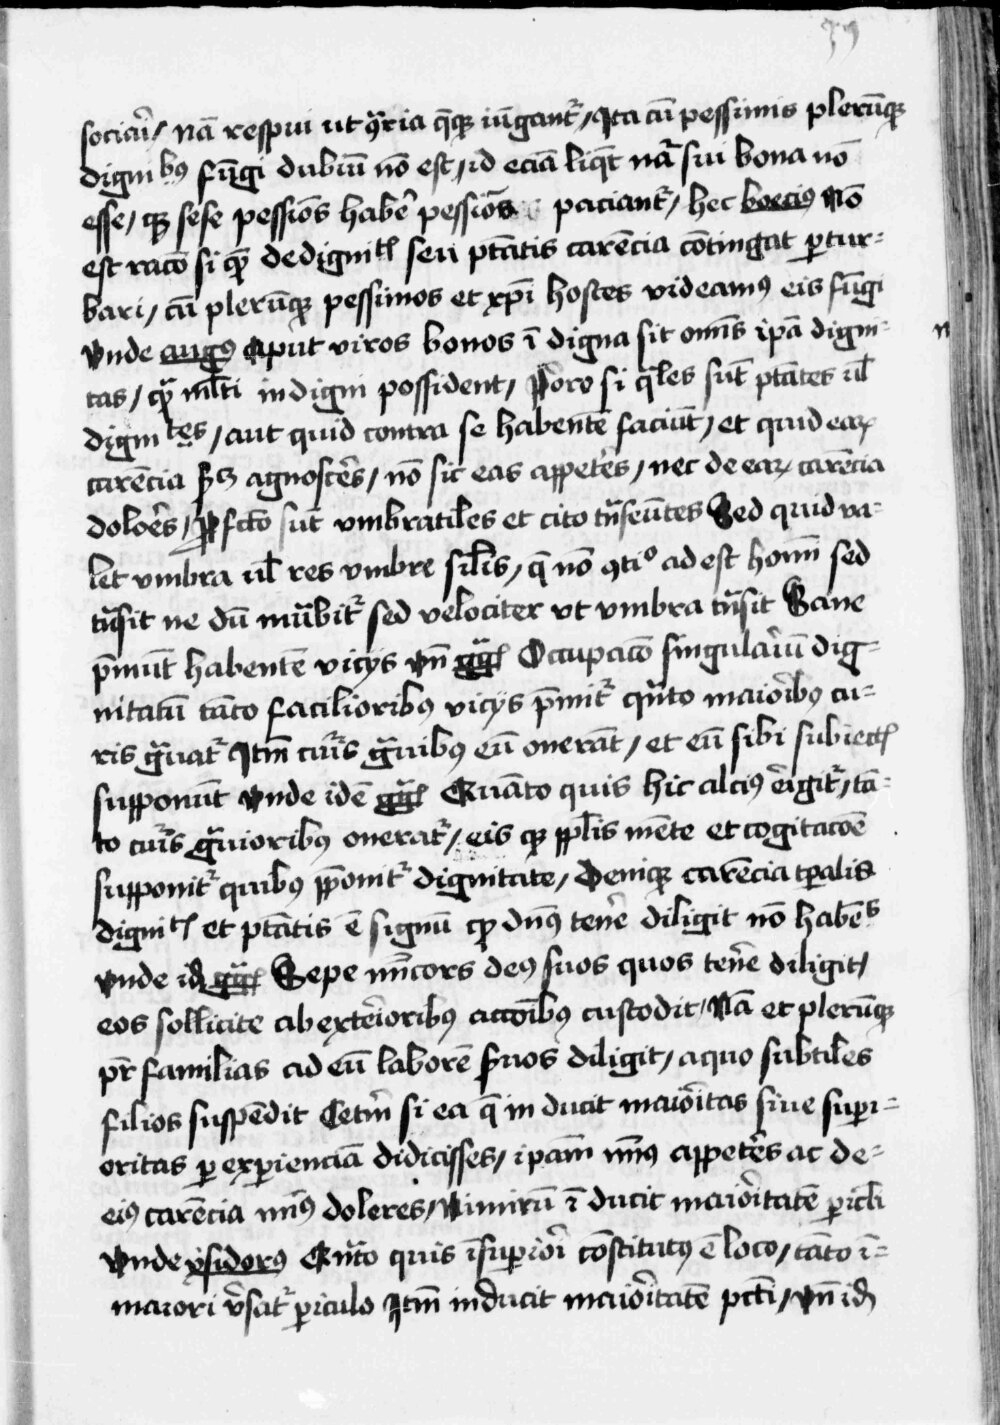 sociari / nā respui ut ꝯ̄ria q̄qꝫ iūgant᷑ / Ita cū pessimis plerūqꝫ
dignibꝰ fūgi dubiū nō est / id eciā liq̄t nā sui bona nō
esse / qꝫ sese pessīōs habē pessīōs paciant᷑ / hec boecius Nō
est racō si qꝫ de dignitꝭ seu ptātis carēcia cōtingat ꝑtur-
bari / cū plerūqꝫ pessimos et xpī hostes videamꝰ eis fūgi
Vnde augꝰ Aput viros bonos ī digna sit omīs ipā digni-
tas / qꝫ ml̄ti in digni possident / Porro si q̄les sūt ptātes ul̄
dignitꝭes / aut quid contra se habentē faciūt / et quid eaꝝ
carēcia ꝓsꝫ agnoscēs / nō sic eas appetēs / nec de eaꝝ carēcia
dolēs / ꝓfcō sūt vmbratiles et cito tn̄seūtes Sed quid va-
let vmbra ul̄ res vmbre sil̄is / q̄ nō ꝯtiᵒ ad est homī sed
tn̄sit ne dū mūbit᷑ sed velociter vt vmbra tn̄sit Sane
p̄mūt habentē vicijs vn̄ gḡꝭ Occupacō singulariū dig-
nitatū tāto facilioribꝰ vicijs p̄mit᷑ qn̄to maioribꝰ cu-
ris gͣuat᷑ Itm̄ curis gͣuibꝰ eū onerāt / et eū sibi subiectꝭ
supponūt Vnde idē gḡꝭ Quāto quis hic alcius erigit᷑ / tā-
to curis gͣuioribꝰ onerat᷑ / eis qꝫ ppl̄is mēte et cogitacōē
supponit᷑ quibꝰ p̄ponit᷑ dignitate / Deniqꝫ carēcia tꝑalis
dignitꝭ et ptātis ē signū qꝫ dn̄s tenē diligit nō habēs
Vnde id gḡꝭ Sepe mīcors deus suos quos tenē diligit /
eos sollicite ab exterioribꝰ accōibꝰ custodit / Nā et plerūqꝫ
pr̄ familias ad eū laborē ꝓuos diligit / a quo subtiles
filios suspēdit Cetm̄ si ea q̄ in ducit maioritas siue supi-
oritas ꝑ exꝑienciā didicisses / ipām mīꝰ appetēs ac de
eiꝰ carēcia mīꝰ doleres / Nimirū ī ducit maioritatē ꝑicl̄i
Vnde ysidorus Qn̄to quis ī suꝑiori cōstitutꝰ ē loco / tāto ī
maiori v̄sat᷑ ꝑiculo Itm̄ inducit maioritatē pctī / vn̄ id